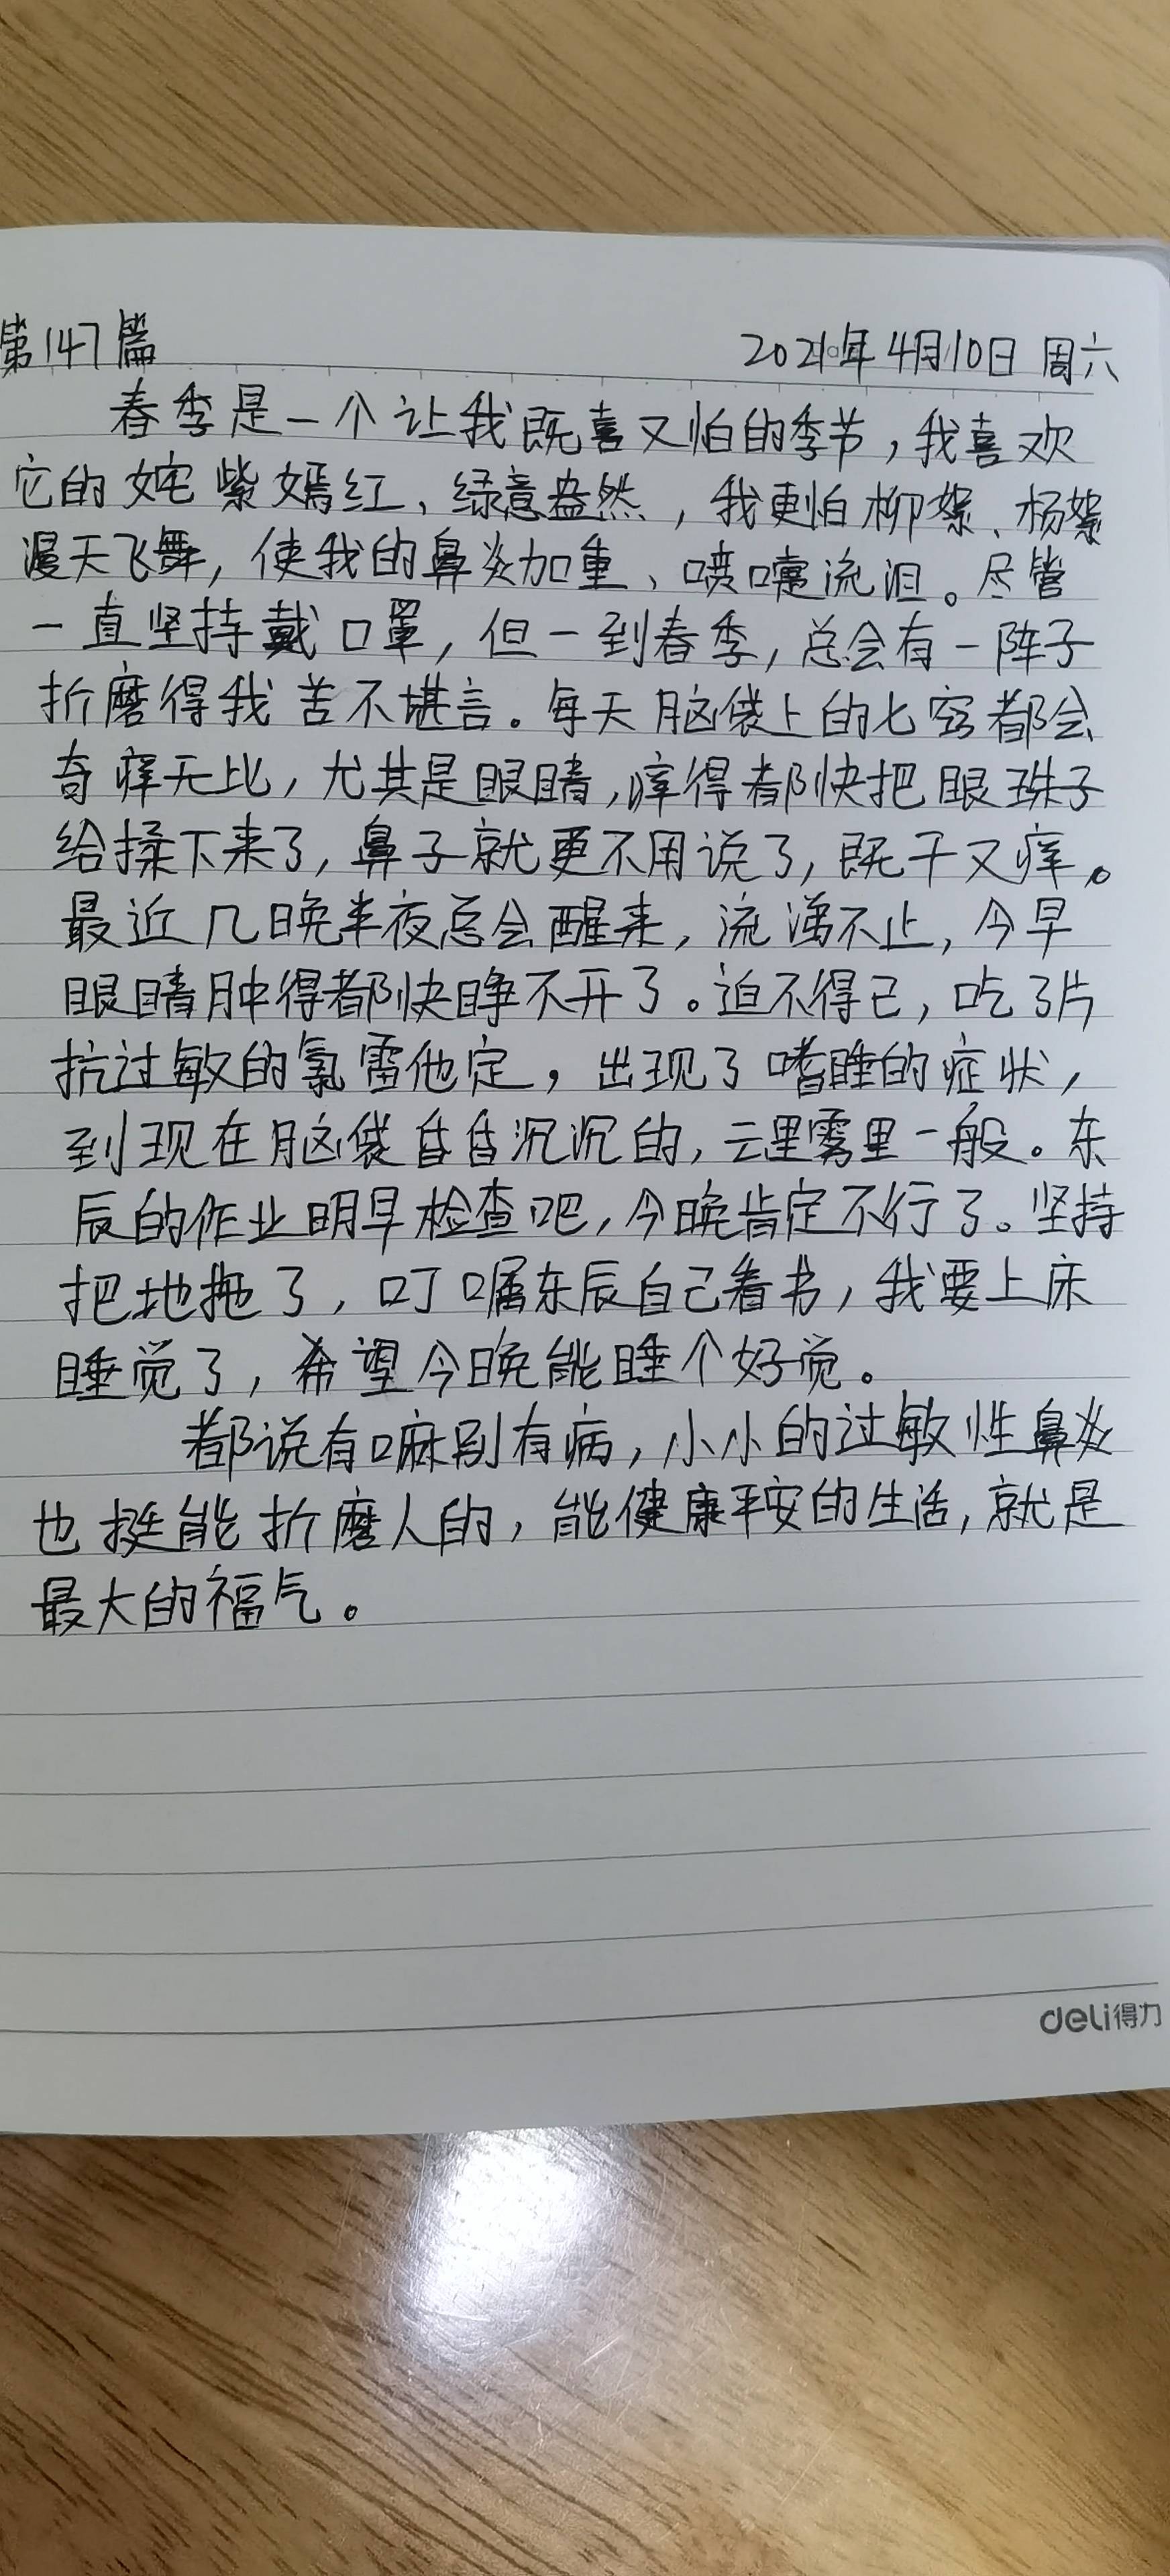 第147篇
2021年4月10日 周六
春季是一个让我既喜又怕的季节,我喜欢
它的姹紫嫣红、绿意盎然,我更怕柳絮、杨絮
漫天飞舞,使我的鼻炎加重、喷嚏流泪。尽管
一直坚持戴口罩,但一到春季,总会有一阵子
折磨得我苦不堪言。每天脑袋上的七窍都会
奇痒无比,尤其是眼睛,痒得都快把眼珠子
给揉下来了,鼻子就更不用说了,既干又痒。
最近几晚半夜总会醒来,流涕不止,今早
眼睛肿得都快睁不开了。迫不得已,吃了片
抗过敏的氯雷他定,出现了嗜睡的症状,
到现在脑袋昏昏沉沉的,云里雾里一般。东
辰的作业明早检查吧,今晚肯定不行了。坚持
把地拖了,叮嘱东辰自己看书,我要上床
睡觉了,希望今晚能睡个好觉。
都说有嘛别有病,小小的过敏性鼻炎
也挺能折磨人的,能健康平安的生活,就是
最大的福气。
deli得力